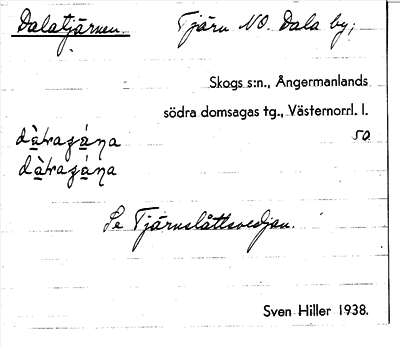 Dalatjärnen. Tjärn NO. Dala by;
Skogs s:n., Ångermanlands
södra domsagas tg., Västernorrl. l.
50
Se Tjärnslåttsvedjan.
Sven Hiller 1938.